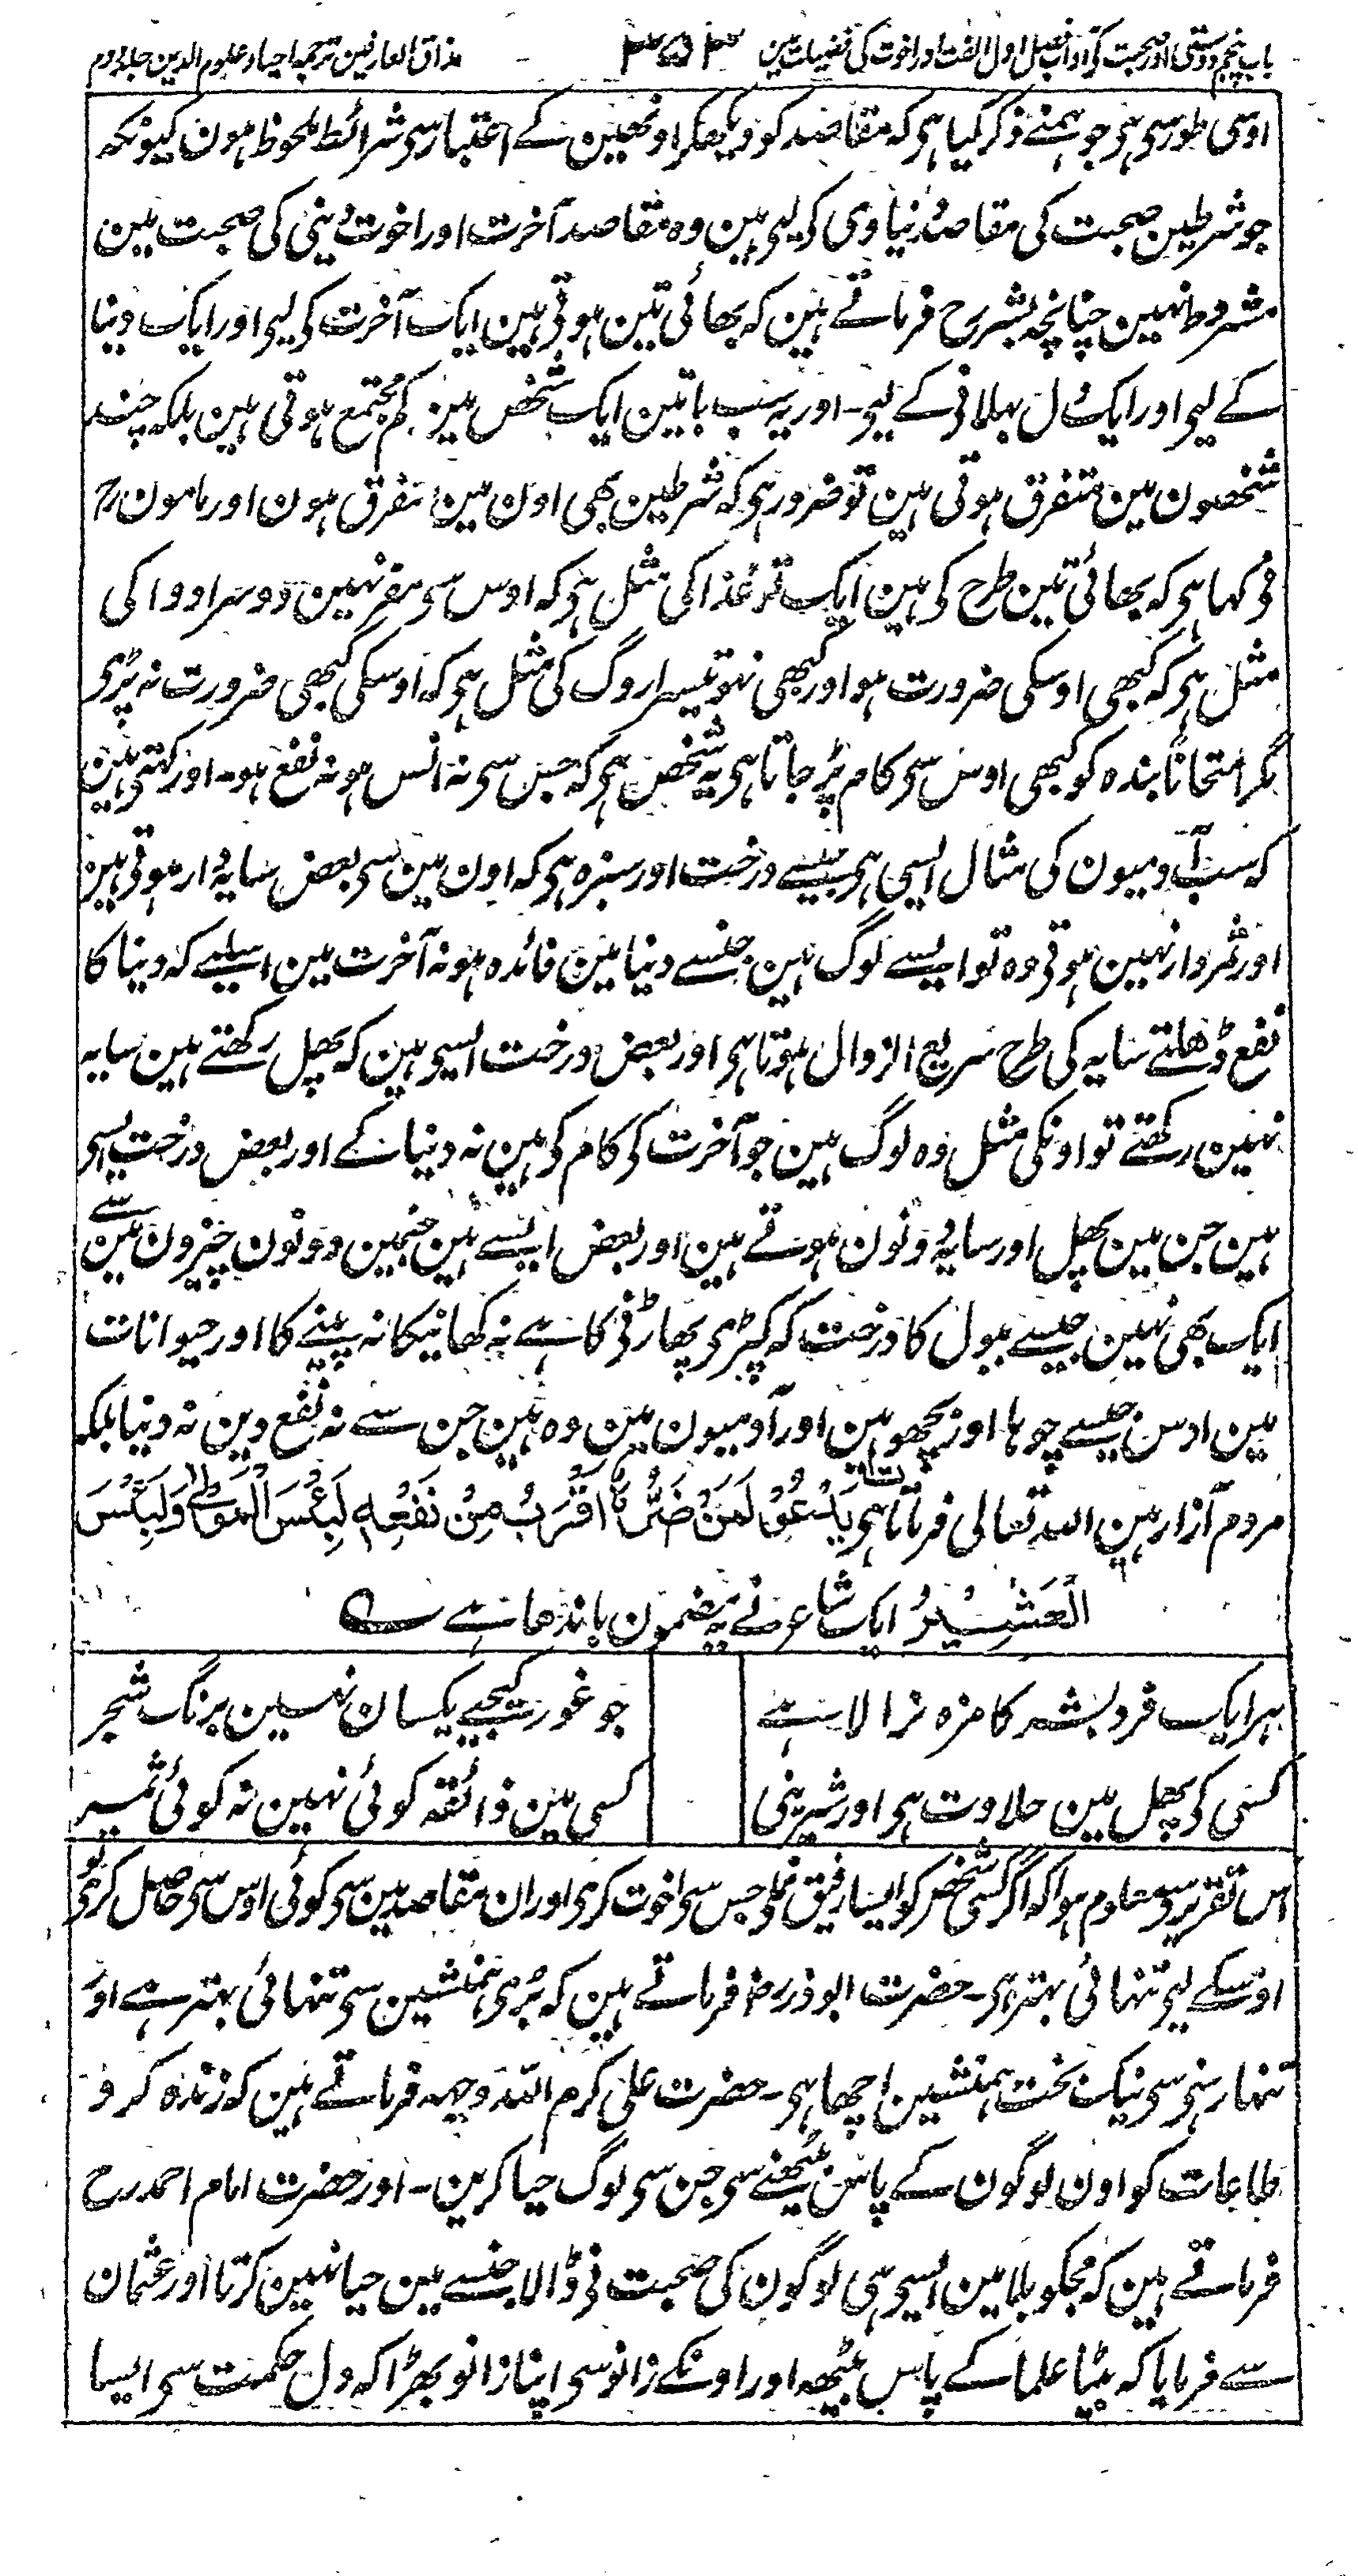 باب پنجم دوستی اور صحبت کی آداب فصل اول الفت اور اخوت کی فضیلت مین ۳۵۳ مذاق العارفین ترجمہ احیاء علوم الدین جلد دوم
اوسی طور سی ہی جو ہمنے ذکر کیا ہی کہ مقاصد کو دیکھکر اونھین کے اعتبار سی شرائط ملحوظ ہون کیونکہ
جو شرطین صحبت کی مقاصد دنیاوی کی لیی ہین وہ مقاصد آخرت اور اخوت دینی کی صحبت مین
مشروط نہین چنانچہ بشر رح فرماتے ہین کہ بھائی تین ہوتی ہین ایک آخرت کی لیی اور ایک دنیا
کے لیی اور ایک دل بہلانی کے لیی۔ اور یہ سب باتین ایک شخص مین کم مجتمع ہوتی ہین بلکہ چند
شخصون مین متفرق ہوتی ہین تو ضرور ہی کہ شرطین بھی اون مین متفرق ہون اور مامون رح
نی کہا ہی کہ بھائی تین طرح کی ہین ایک تو غذا کی مثل ہی کہ اوس سی مفر نہین دوسرا دوا کی
مثل ہی کہ کبھی اوسکی ضرورت ہو اور کبھی نہو تیسرا روگ کی مثل ہی کہ اوسکی کبھی ضرورت نہ پڑی
مگر امتحاناً بندہ کو کبھی اوس سی کام پڑ جاتا ہی یہ شخص ہی کہ جس سی نہ انس ہو نہ نفع ہو۔ اور کہتی ہین
کہ سب آدمیون کی مثال ایسی ہی جیسے درخت اور سبزہ ہی کہ اون مین سی بعض سایہ دار ہوتی ہین
اور ثمردار نہین ہوتی وہ تو ایسے لوگ ہین جنسے دنیا مین فائدہ ہو نہ آخرت مین اسلیے کہ دنیا کا
نفع ڈھلتے سایہ کی طرح سریع الزوال ہوتا ہی اور بعض درخت ایسی ہین کہ پھل رکھتے ہین سایہ
نہین رکھتے تو اونکی مثل وہ لوگ ہین جو آخرت کی کام کی ہین نہ دنیا کے اور بعض درخت ایسی
ہین جن مین پھل اور سایہ دونون ہوتے ہین اور بعض ایسے ہین جنمین دونون چیزون مین سے
ایک بھی نہین جیسے ببول کا درخت کہ کپڑی پھاڑنی کا ہے نہ کھانیکا نہ پینے کا اور حیوانات
مین اوس جیسے چوہا اور بچھو ہین اور آدمیون مین وہ ہین جن سے نہ نفع دین نہ دنیا بلکہ
مردم آزار ہین اللہ تعالی فرماتا ہی یَدْعُوْ لَمَنْ ضَرُّہٗ اَقْرَبُ مِنْ نَفْعِہٖ لَبِئْسَ الْمَوْلٰی وَلَبِئْسَ
الْعَشِیْرُ ایک شاعر نے یہ مضمون باندھا ہے
ہر ایک فرد بشر کا مزہ نرالا ہے جو غور کیجیے یکسان نہین برنگ شجر
کسی کی پھل مین حلاوت ہی اور شیرینی کسی مین ذائقہ کوئی نہین نہ کوئی ثمر
اس تقریر سی معلوم ہوا کہ اگر کسی شخص کو ایسا رفیق نملی جس سی اخوت کری اور ان مقاصد مین سی کوئی اوس سی حاصل کری تو
اوسکے لیی تنہائی بہتر ہی۔ حضرت ابوذر رض فرماتے ہین کہ بُری ہمنشین سی تنہائی بہتر ہے اور
تنہا رہنی سی نیک بخت ہمنشین اچھا ہی۔ حضرت علی کرم اللہ وجہہ فرماتے ہین کہ زندہ کرو
طاعات کو اون لوگون کے پاس بیٹھنے سی جن سی لوگ حیا کرین۔ اور حضرت امام احمد رح
فرماتے ہین کہ مجکو بلا مین ایسی ہی لوگون کی صحبت نی ڈالا جنسے مین حیا نہین کرتا اور عثمان
سے فرمایا کہ بیٹا علما کے پاس بیٹھہ اور اونکے زانو سی اپنا زانو بھڑا کہ دل حکمت سی ایسا